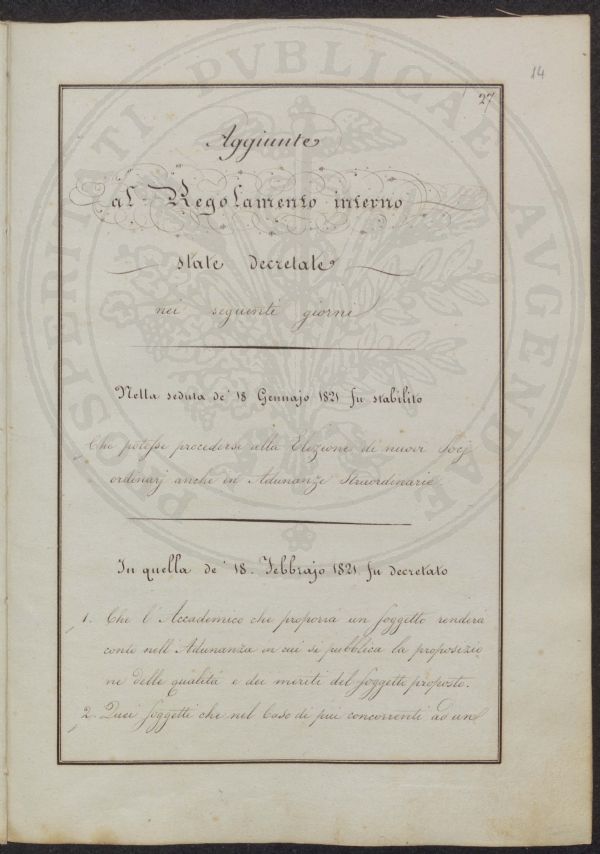 14
27
Aggiunte
al Regolamento interno
state decretate
nei seguenti giorni
Nella seduta de' 18 Gennajo 1821 fu stabilito
Che potesse procedersi alla Elezione di nuovi Socj
ordinarj anche in Adunanze Straordinarie.
In quella de' 18. Febbrajo 1821. fu decretato
1. Che l'Accademico che proporrà un soggetto renderà
conto nell'Adunanza in cui si pubblica la proposizio
ne delle qualità e dei meriti del soggetto proposto.
2. Quei soggetti che nel Caso di più concorrenti ad un
PROSPERITATI PVBLICAE AVGENDAE